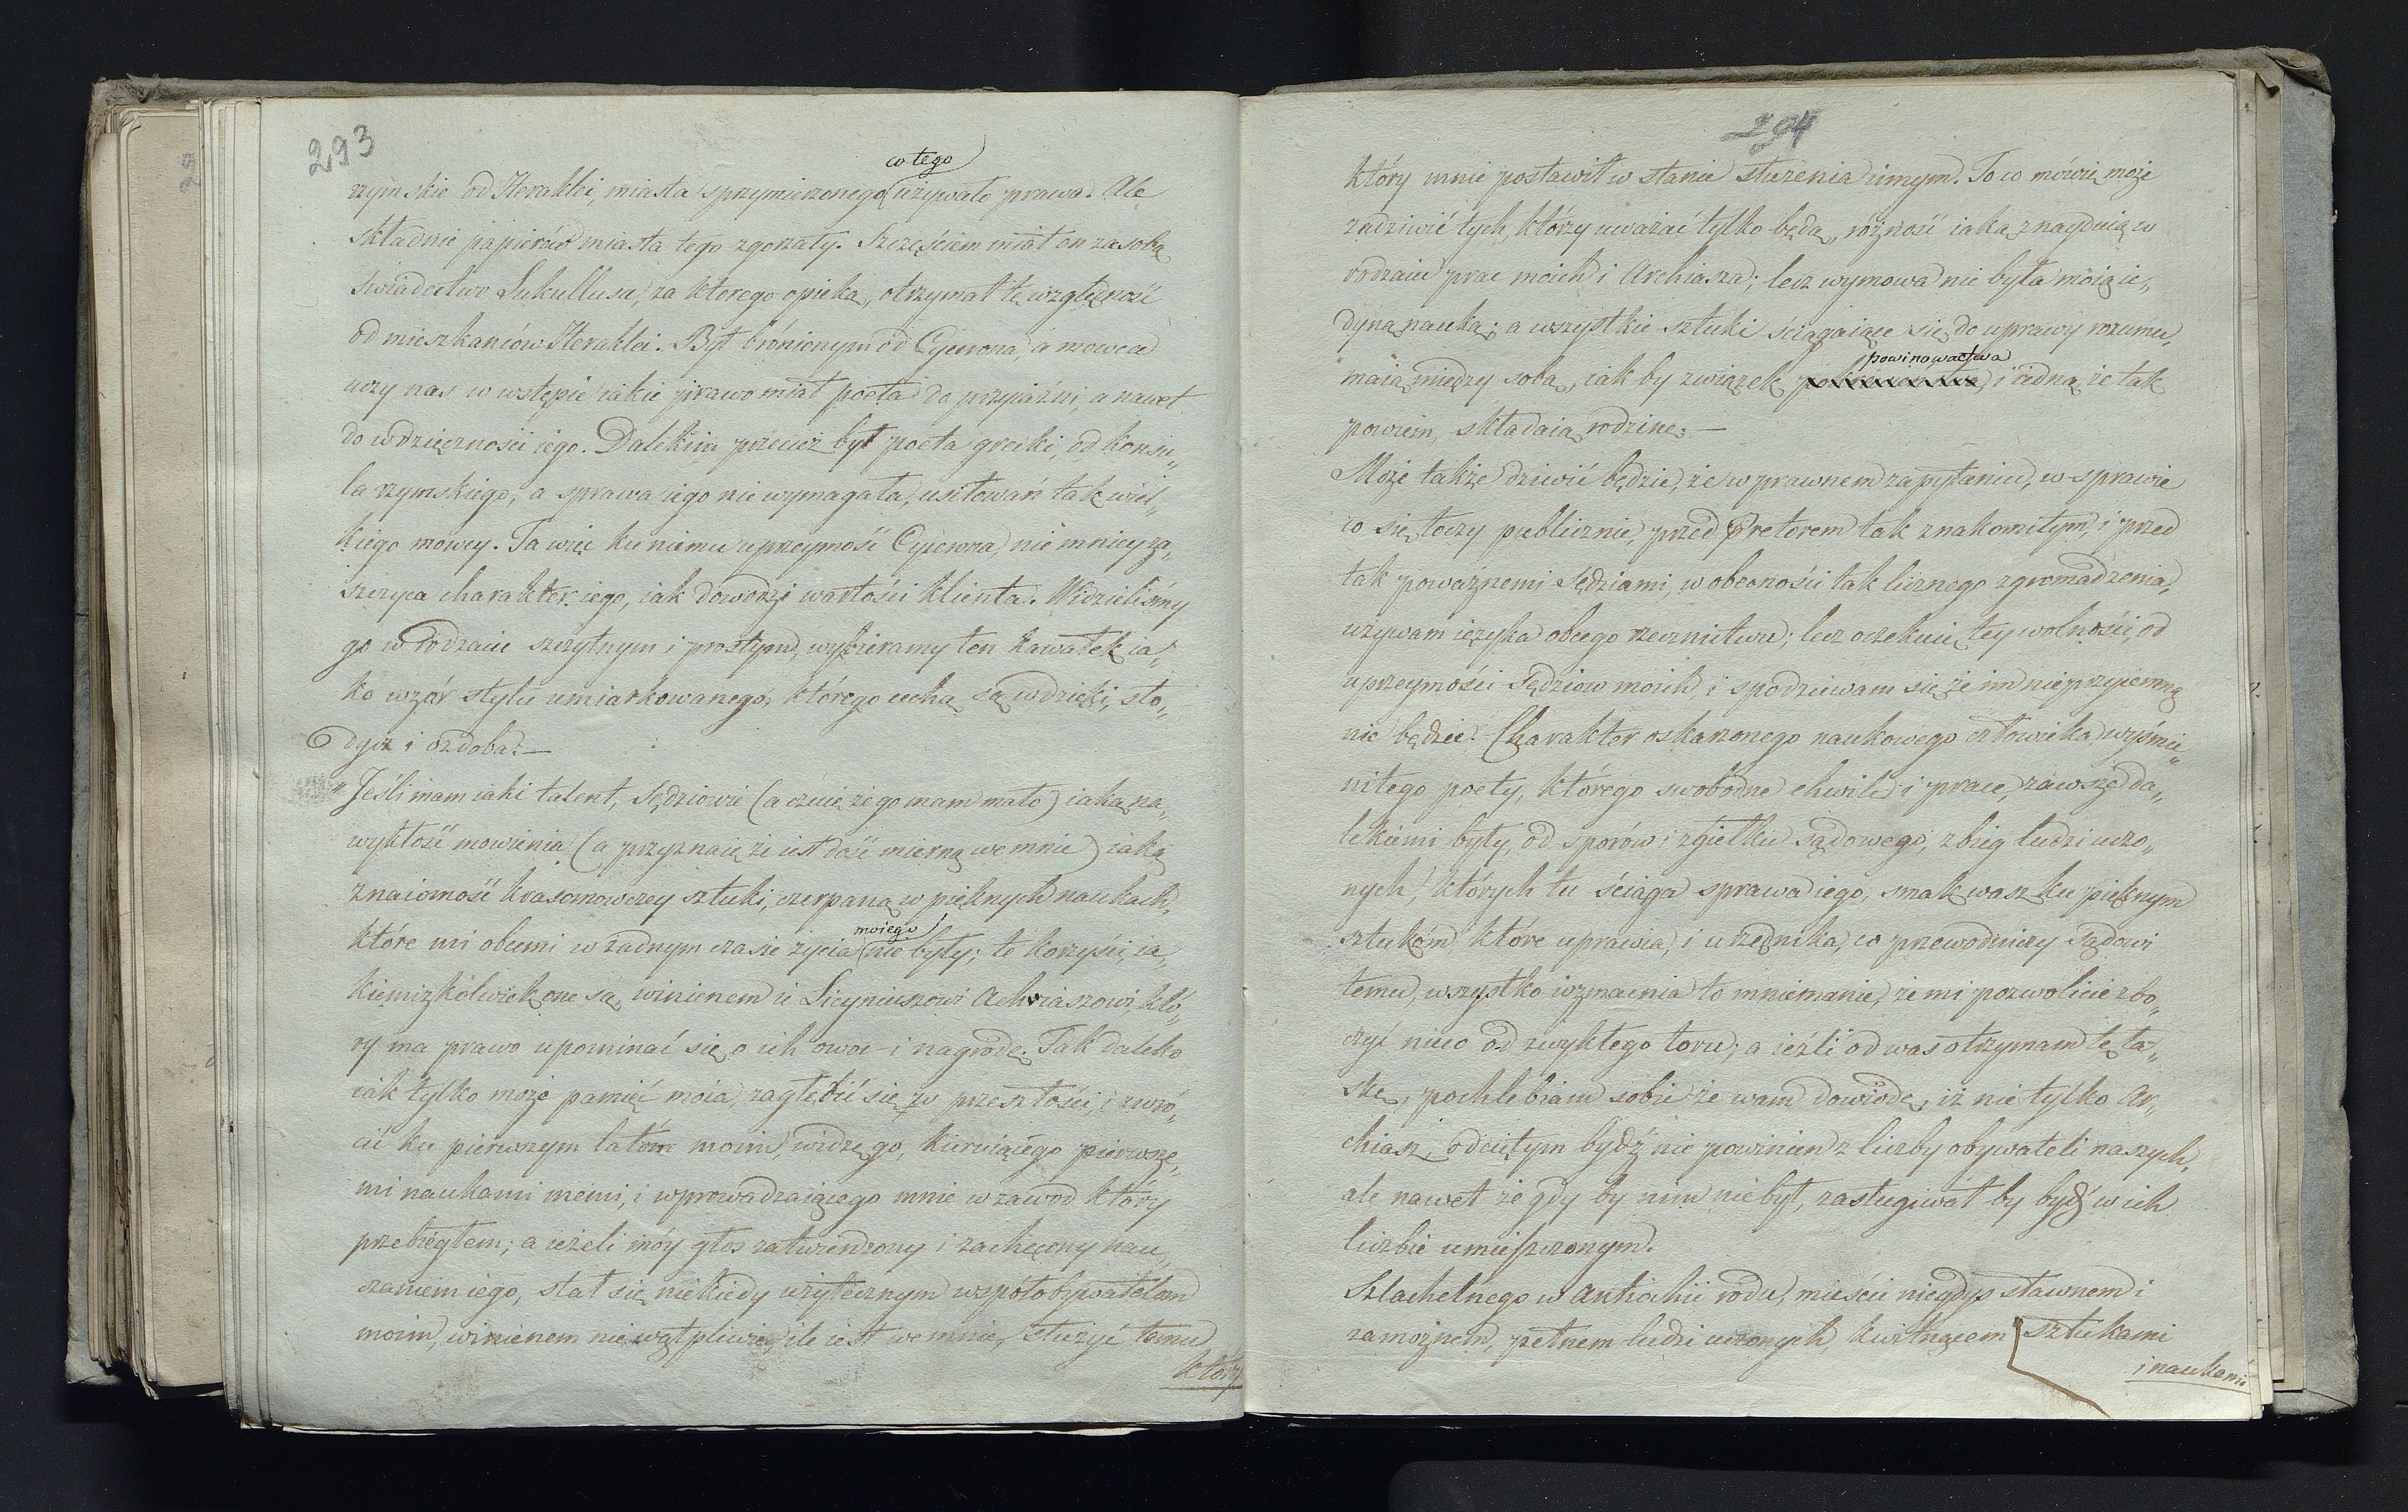 293
co tego
rzymskie od Heraklei, miasta sprzymierzonego używało prawa. Ale
składnie papierów miasta tego zgorzały. Szczęściem miał on za sobą
świadectwo Lukullusa, za ktorego opieką, otrzymał tę względność
od mieszkańców Heraklei. Był brónionym od Cycerona, a mowca
uczy nas w wstępie iakie prawo miał poeta do przyiaźni, a nawet
do wdzięczności iego. Dalekim przecież był poeta grecki, od konsu„
la rzymskiego, a sprawa iego nie wymagała, usiłowań tak wiel„
kiego mowcy. Ta więc ku niemu uprzeymość Cycerona, nie mniey za„
szczyca charakter iego, iak dowodzi wartości klienta. Widzieliśmy
go w rodzaiu szczytnym i prostym, wybieramy ten kawałek ia„
ko wzór stylu umiarkowanego, którego cechą są wdzięki, sło„
dycz i ozdoba. —
"Jeśli mam iaki talent, Sędziowie (a czuię że go mam mało) iaką na„
wykłość mowienia (a przyznaię że iest dość mierną we mnie) iaką
znaiomość krasomowczey sztuki, czerpaną w pięknych naukach,
moiego
które mi obcemi w żadnym czasie życia nie były; te korzyści, ia„
kiemiżkolwiek one są, winienem ie Licyniuszowi Achiaszowi, któ„
ry ma prawo upominać się o ich owoc i nagrodę. Tak daleko
iak tylko może pamięć moia zagłębić się w przeszłości, i zwró„
cić ku pierwszym latóm moim, widzę go, kieruiącego pierwsze„
mi naukami memi, i wprowadzaiącego mnie w zawod który
przebiegłem; a ieżeli móy głos zatwierdzony i zachęcony nau„
czaniem iego, stał się niekiedy użytecznym współobywatelom
moim, winienem nie wątpliwie, ile iest we mnie, służyć temu
który
294
który mnie postawił w stanie służenia innym. To co mówię, może
zadziwić tych, którzy uważać tylko będą, różność iaką znayduią w
rodzaiu prac moich i Archiasza; lecz wymowa nie była moią ie„
dyną nauką; a wszystkie sztuki ściągaiące się do uprawy rozumu,
powinowactwa
maią między sobą, iak by związek i iedną, że tak
powiem, składaią rodzinę. —
Może także dziwić będzie, że w prawnem zapytaniu, w sprawie
co się toczy publicznie, przed Pretorem tak znakomitym, i przed
tak poważnemi Sędziami, w obecności tak licznego zgromadzenia,
używam ięzyka obcego rzecznictwu; lecz oczekuię tey wolności, od
uprzeymości Sędziow moich, i spodziewam się że im nieprzyiemną
nie będzie. Charakter oskarżonego naukowego człowieka, wyśmie„
nitego poety, którego swobodne chwile i prace, zawsze da„
lekiemi były, od sporów i zgiełku sądowego, zbieg ludzi uczo„
nych, których tu ściąga sprawa iego, smak wasz ku pięknym
sztukóm, które uprawia, i urzędnika, co przewodniczy sądowi
temu, wszystko wzmacnia to mniemanie, że mi pozwolicie zbo„
czyć nieco od zwykłego toru; a ieżli od was otrzymam tę ła„
skę, pochlebiam sobie że wam dowiodę, iż nie tylko Ar„
chiasz, odciętym bydź nie powinien z liczby obywateli naszych,
ale nawet że gdy by nim nie był, zasługiwał by bydź w ich
liczbie umieszczonym.
Szlachetnego w Antiochii rodu, mieście niegdyś sławnem i
zamożnem, pełnem ludzi uczonych, kwitnącem sztukami
i naukami